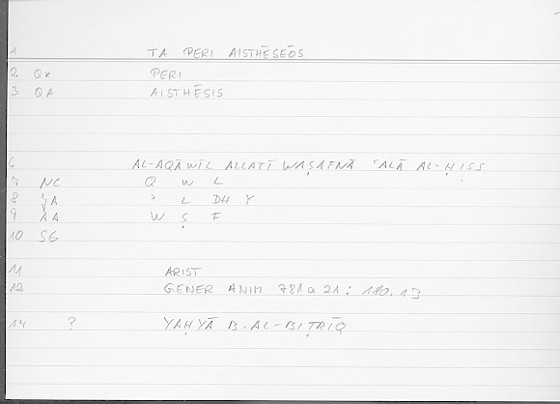 1 TA PERI AISTHĒSEŌS
2 QX PERI
3 QA AISTHĒSIS
6 AL-AQĀWĪL ALLATĪ WAṢAFNĀ ʿALĀ AL-ḤISS
7 NC Q W L
8 ʾ L DH Y
9 AA W Ṣ F
10 SG
11 ARIST
12 GENER ANIM 781a21: 180.13
14 ? YAḤYĀ B. AL-BIṬRĪQ